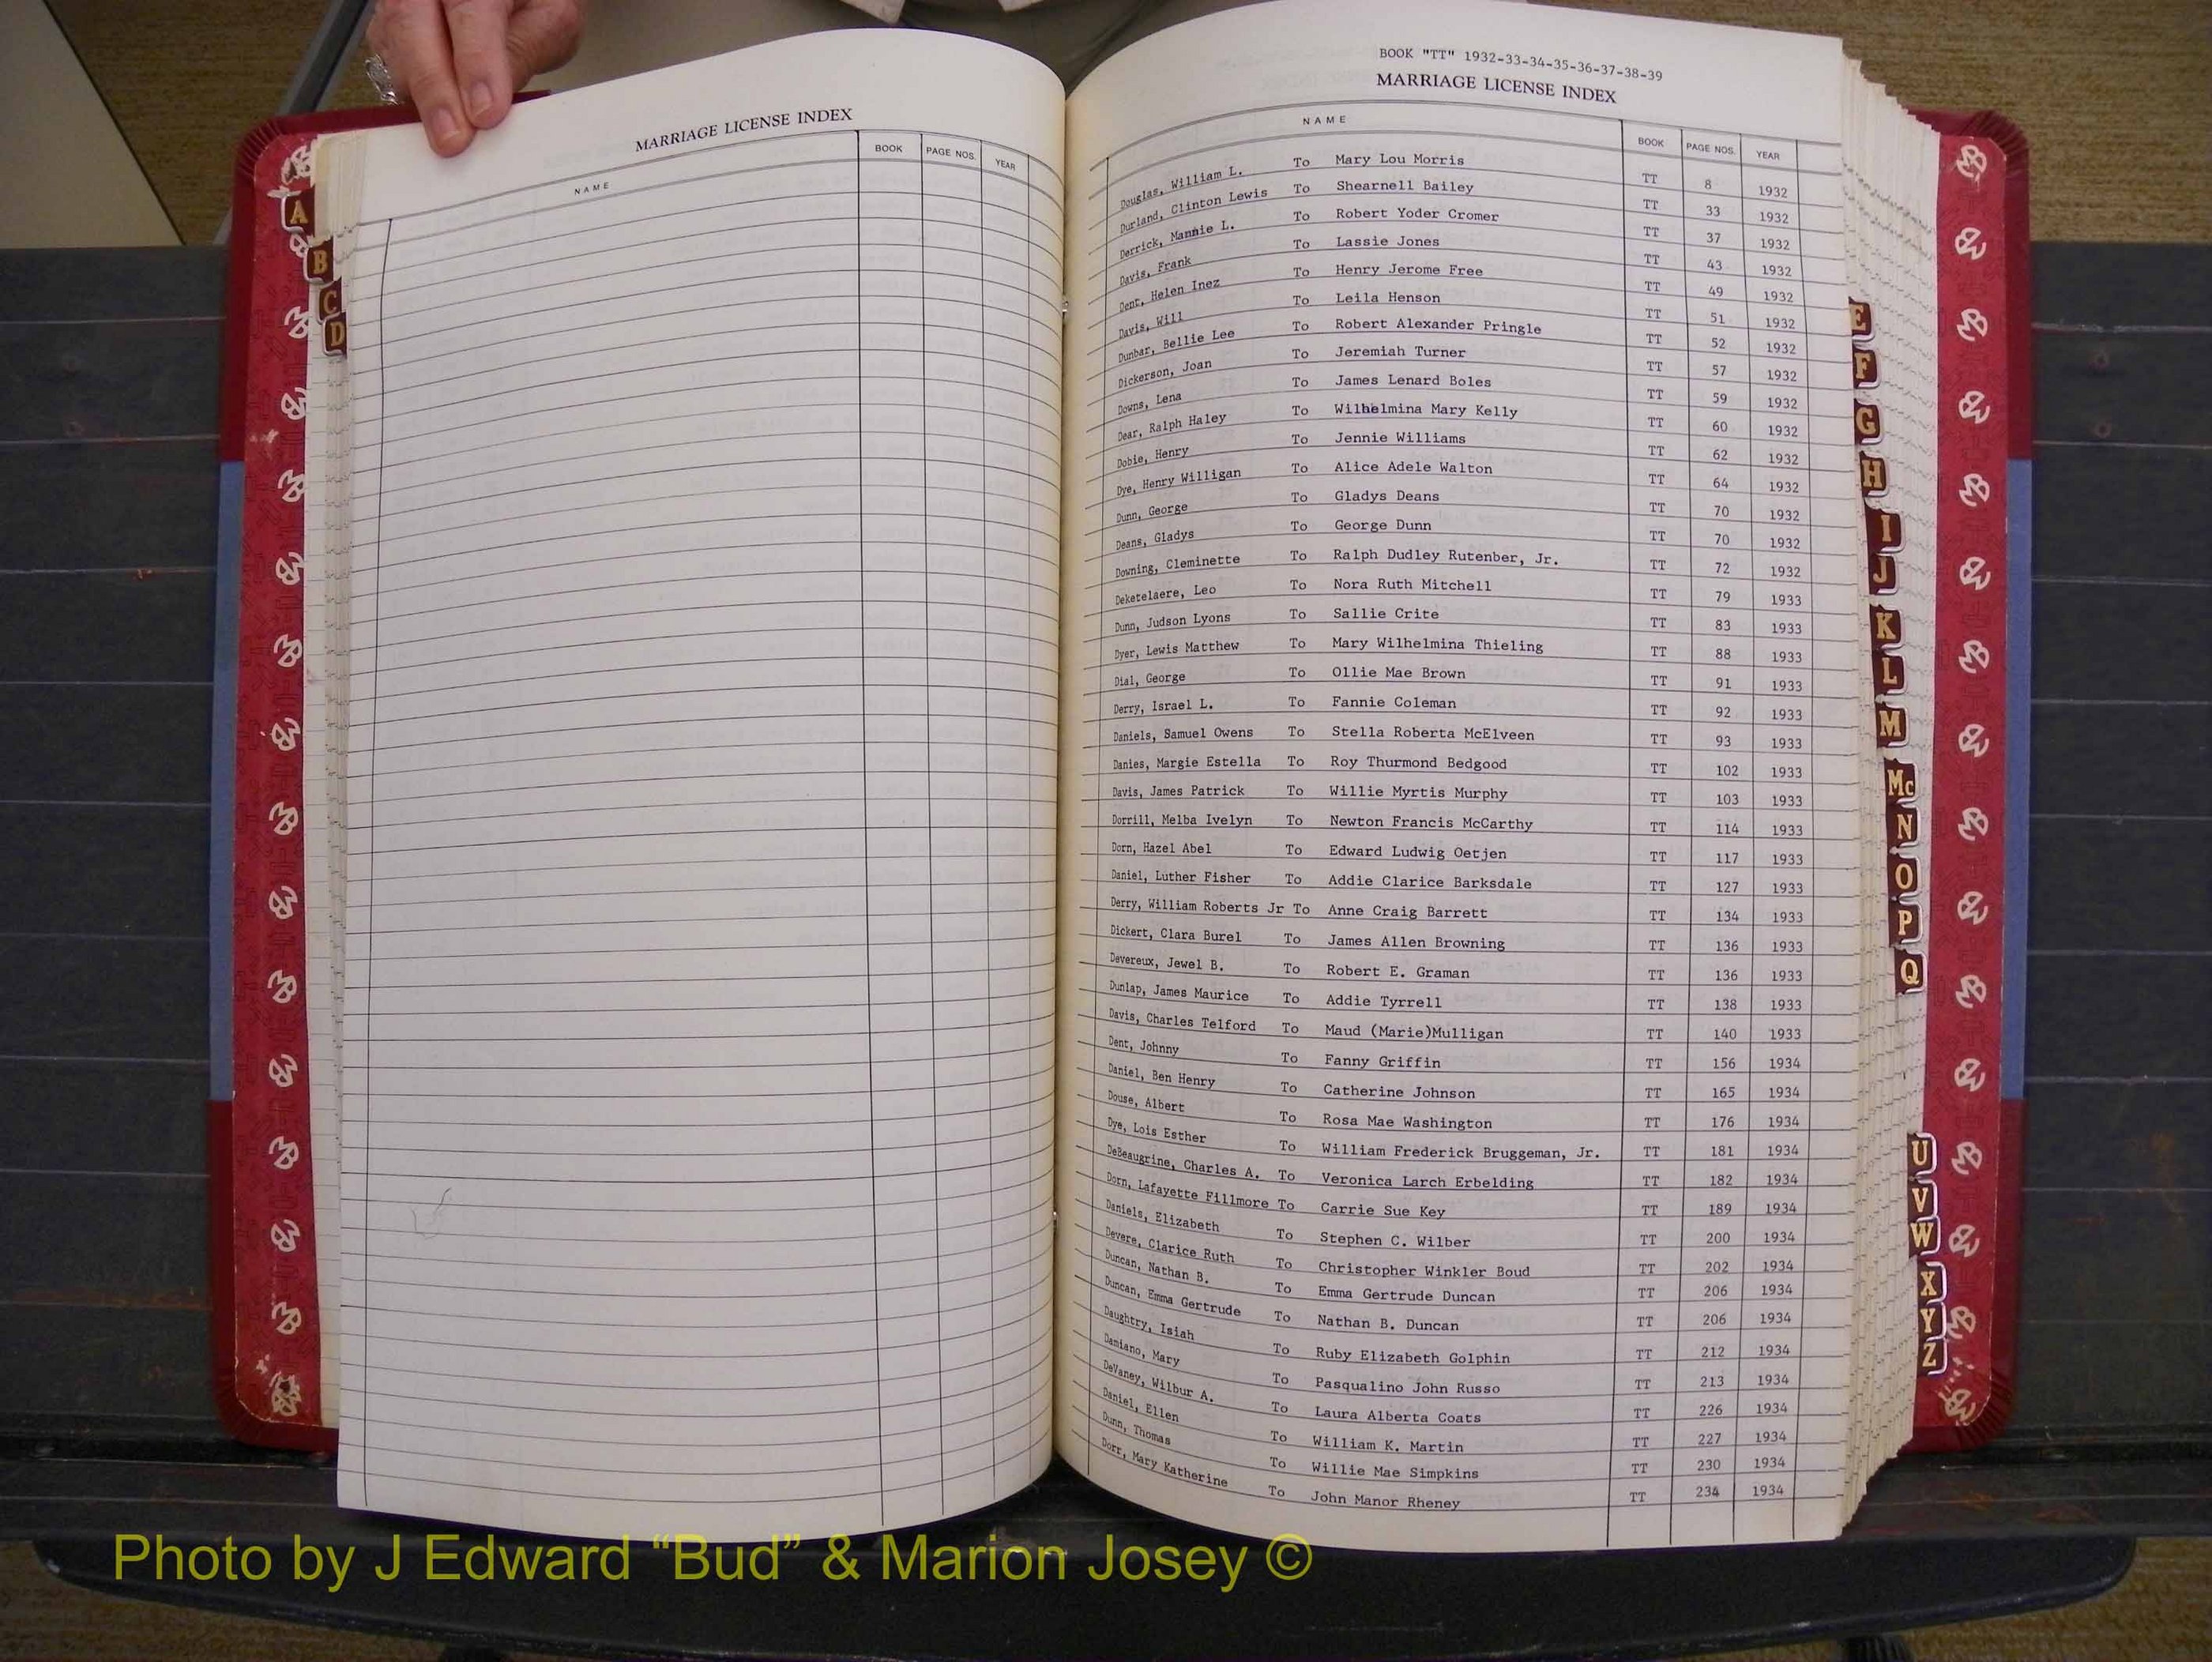 MARRIAGE LICENSE INDEX
NAME BOOK PAGE NOS. YEAR
A
B
C
D
BOOK "TT" 1932-33-34-35-36-37-38-39
MARRIAGE LICENSE INDEX
NAME BOOK PAGE NOS. YEAR
Douglas, William L. To Mary Lou Morris TT 8 1932
Durland, Clinton Lewis To Shearnell Bailey TT 33 1932
Derrick, Mannie L. To Robert Yoder Cromer TT 37 1932
Davis, Frank To Lassie Jones TT 43 1932
Dent, Helen Inez To Henry Jerome Free TT 49 1932
Davis, Will To Leila Henson TT 51 1932
Dunbar, Bellie Lee To Robert Alexander Pringle TT 52 1932
Dickerson, Joan To Jeremiah Turner TT 57 1932
Downs, Lena To James Lenard Boles TT 59 1932
Dear, Ralph Haley To Wilhelmina Mary Kelly TT 60 1932
Dobie, Henry To Jennie Williams TT 62 1932
Dye, Henry Willigan To Alice Adele Walton TT 64 1932
Dunn, George To Gladys Deans TT 70 1932
Deans, Gladys To George Dunn TT 70 1932
Downing, Cleminette To Ralph Dudley Rutenber, Jr. TT 72 1932
Deketelaere, Leo To Nora Ruth Mitchell TT 79 1933
Dunn, Judson Lyons To Sallie Crite TT 83 1933
Dyer, Lewis Matthew To Mary Wilhelmina Thieling TT 88 1933
Dial, George To Ollie Mae Brown TT 91 1933
Derry, Israel L. To Fannie Coleman TT 92 1933
Daniels, Samuel Owens To Stella Roberta McElveen TT 93 1933
Danies, Margie Estella To Roy Thurmond Bedgood TT 102 1933
Davis, James Patrick To Willie Myrtis Murphy TT 103 1933
Dorrill, Melba Ivelyn To Newton Francis McCarthy TT 114 1933
Dorn, Hazel Abel To Edward Ludwig Oetjen TT 117 1933
Daniel, Luther Fisher To Addie Clarice Barksdale TT 127 1933
Derry, William Roberts Jr To Anne Craig Barrett TT 134 1933
Dickert, Clara Burel To James Allen Browning TT 136 1933
Devereux, Jewel B. To Robert E. Graman TT 136 1933
Dunlap, James Maurice To Addie Tyrrell TT 138 1933
Davis, Charles Telford To Maud (Marie)Mulligan TT 140 1933
Dent, Johnny To Fanny Griffin TT 156 1934
Daniel, Ben Henry To Catherine Johnson TT 165 1934
Douse, Albert To Rosa Mae Washington TT 176 1934
Dye, Lois Esther To William Frederick Bruggeman, Jr. TT 181 1934
DeBeaugrine, Charles A. To Veronica Larch Erbelding TT 182 1934
Dorn, Lafayette Fillmore To Carrie Sue Key TT 189 1934
Daniels, Elizabeth To Stephen C. Wilber TT 200 1934
Devere, Clarice Ruth To Christopher Winkler Boud TT 202 1934
Duncan, Nathan B. To Emma Gertrude Duncan TT 206 1934
Duncan, Emma Gertrude To Nathan B. Duncan TT 206 1934
Daughtry, Isiah To Ruby Elizabeth Golphin TT 212 1934
Damiano, Mary To Pasqualino John Russo TT 213 1934
DeVaney, Wilbur A. To Laura Alberta Coats TT 226 1934
Daniel, Ellen To William K. Martin TT 227 1934
Dunn, Thomas To Willie Mae Simpkins TT 230 1934
Dorr, Mary Katherine To John Manor Rheney TT 234 1934
E
F
G
H
I
J
K
L
M
Mc
N
O
P
Q
U
V
W
X
Y
Z
Photo by J Edward “Bud” & Marion Josey ©